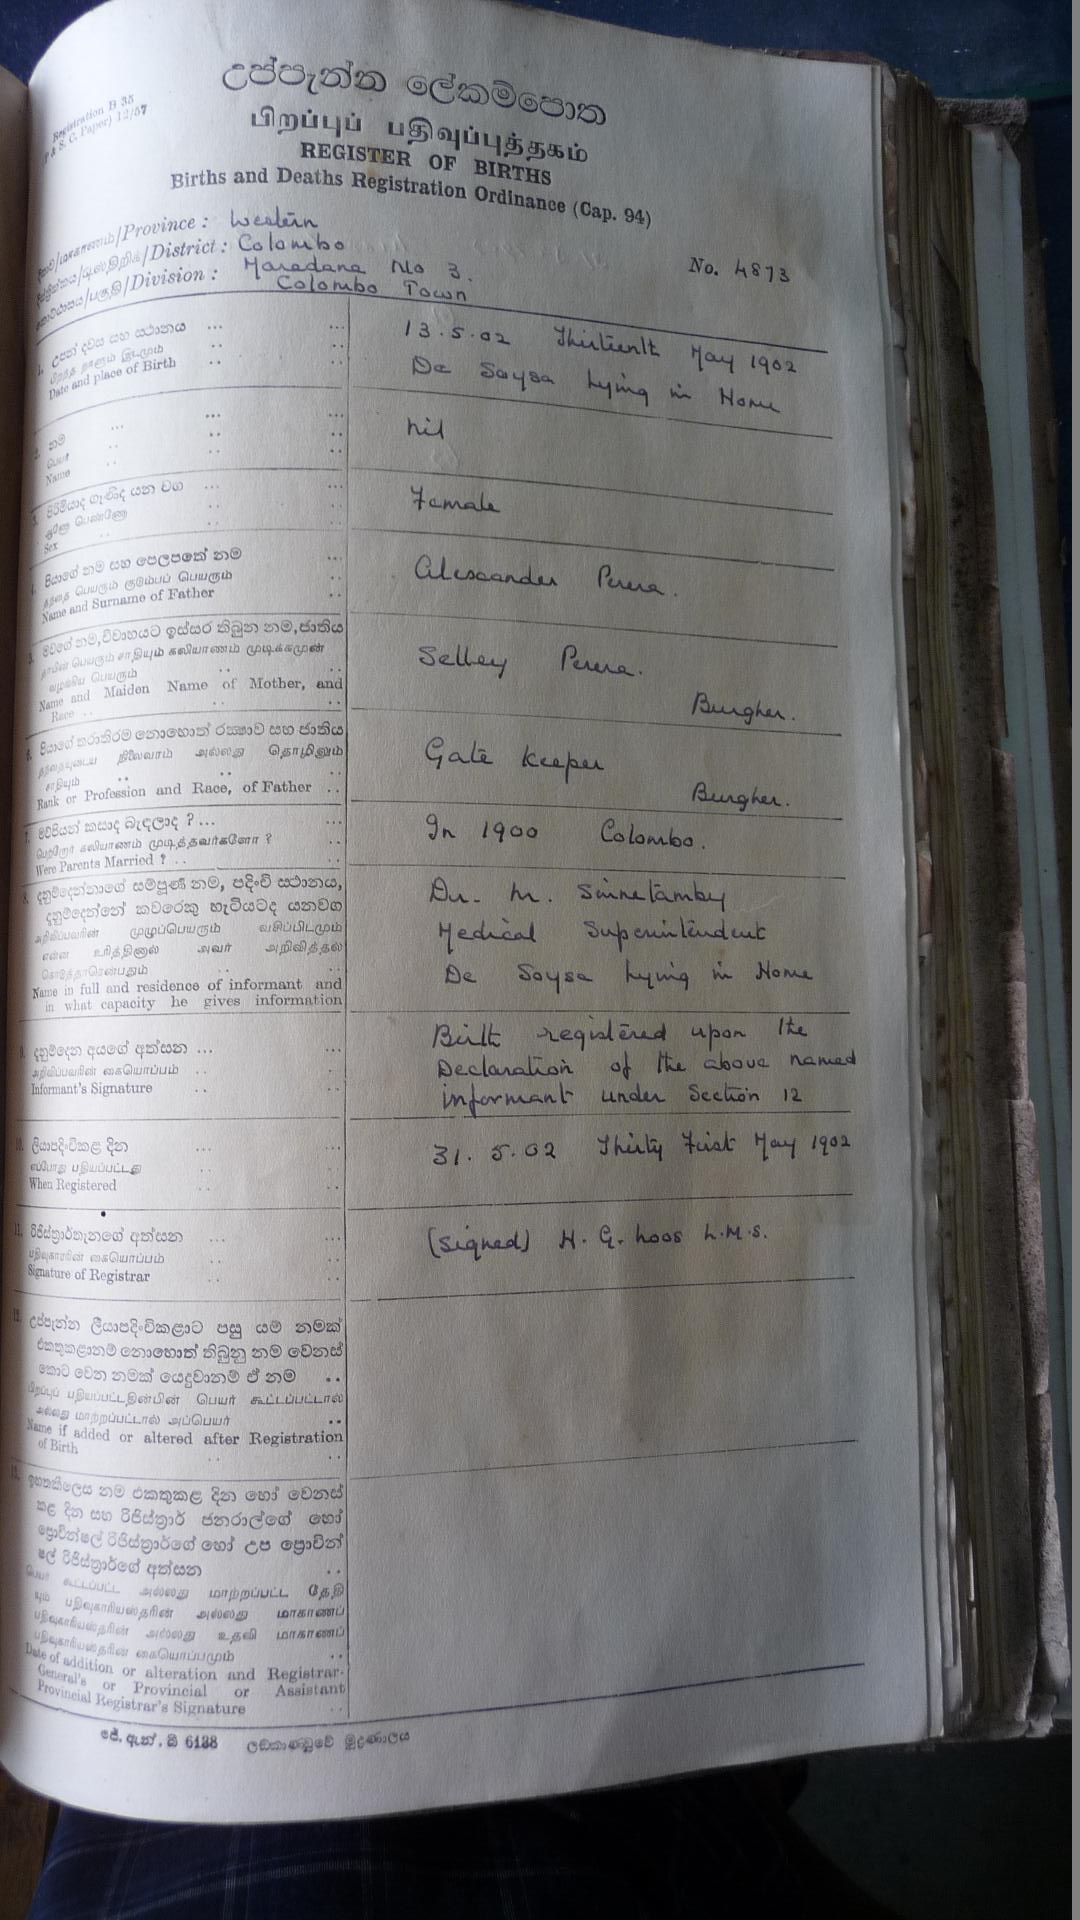 Registration B 35
(P & S. C. Paper) 12/57
උප්පැන්න ලේකම්පොත
பிறப்புப் பதிவுப்புத்தகம்
REGISTER OF BIRTHS
Births and Deaths Registration Ordinance (Cap. 94)
Province : Western
District : Colombo
No. 4873
Division : Maradana No 3.
Colombo Town
1. උපන් දවස සහ ස්ථානය
பிறந்த நாளும் இடமும்
Date and place of Birth
13.5.02 Thirteenth May 1902
De Soysa Lying in Home
2. නම
பெயர்
Name
nil
3. පිරිමියාද ගැණිද යන වග
ஆணோ பெண்ணோ
Sex
Female
4. පියාගේ නම සහ පෙලපතේ නම
தந்தை பெயரும் குடும்பப் பெயரும்
Name and Surname of Father
Alexander Perera.
5. මවගේ නම, විවාහයට ඉස්සර තිබුන නම, ජාතිය
தாயின் பெயரும் சாதியும் கலியாணம் முடிக்கமுன்
வழங்கிய பெயரும்
Name and Maiden Name of Mother, and
Race
Selley Perera.
Burgher.
6. පියාගේ තරාතිරම නොහොත් රක්ෂාව සහ ජාතිය
தந்தையுடைய நிலைவரம் அல்லது தொழிலும்
சாதியும்
Rank or Profession and Race, of Father
Gate Keeper
Burgher.
7. මව්පියන් කසාද බැඳලාද ?
பெற்றோர் கலியாணம் முடித்தவர்களோ ?
Were Parents Married ?
In 1900 Colombo.
8. දැනුම්දෙන්නාගේ සම්පූර්ණ නම, පදිංචි ස්ථානය,
දැනුම්දෙන්නේ කවරෙකු හැටියටද යනවග
அறிவிப்பவரின் முழுப்பெயரும் வசிப்பிடமும்
என்ன உரித்தினால் அவர் அறிவித்தல்
கொடுத்தாரென்பதும்
Name in full and residence of informant and
in what capacity he gives information
Dr. M. Sinnetamby
Medical Superintendent
De Soysa Lying in Home
9. දැනුම්දෙන අයගේ අත්සන
அறிவிப்பவரின் கையொப்பம்
Informant's Signature
Birth registered upon the
Declaration of the above named
informant under Section 12
10. ලියාපදිංචිකළ දින
எப்போது பதியப்பட்டது
When Registered
31. 5.02 Thirty First May 1902
11. රිජිස්ත්‍රාර්තැනගේ අත්සන
பதிவுகாரரின் கையொப்பம்
Signature of Registrar
(Signed) H. G. Loos L.M.S.
12. උප්පැන්න ලියාපදිංචිකළාට පසු යම් නමක්
එකතුකළානම් නොහොත් තිබුනු නම වෙනස්
කොට වෙන නමක් යෙදුවානම් ඒ නම
பிறப்புப் பதியப்பட்டதின்பின் பெயர் கூட்டப்பட்டால்
அல்லது மாற்றப்பட்டால் அப்பெயர்
Name if added or altered after Registration
of Birth
13. ඉහතකීලෙස නම එකතුකළ දින හෝ වෙනස්
කළ දින සහ රිජිස්ත්‍රාර් ජනරාල්ගේ හෝ
ප්‍රොවින්ෂල් රිජිස්ත්‍රාර්ගේ හෝ උප ප්‍රොවින්
ෂල් රිජිස්ත්‍රාර්ගේ අත්සන
பெயர் கூட்டப்பட்ட அல்லது மாற்றப்பட்ட தேதி
யும் பதிவுகாரியஸ்தரின் அல்லது மாகாணப்
பதிவுகாரியஸ்தரின் அல்லது உதவி மாகாணப்
பதிவுகாரியஸ்தரின் கையொப்பமும்
Date of addition or alteration and Registrar-
General's or Provincial or Assistant
Provincial Registrar's Signature
ජේ. ඇන්. බී 6138 ලඞ්කාණ්ඩුවේ මුද්‍රණාලය